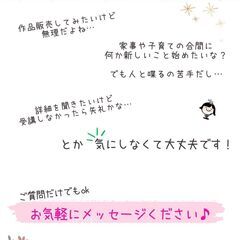 作品販売してみたいけど
無理だよね…
家事や子育ての合間に
何か新しいこと始めたいな?
でも人と喋るの苦手だし…
詳細を聞きたいけど
受講しなかったら失礼かな…
とか 気にしなくて大丈夫です!
ご質問だけでもok
お気軽にメッセージください♪